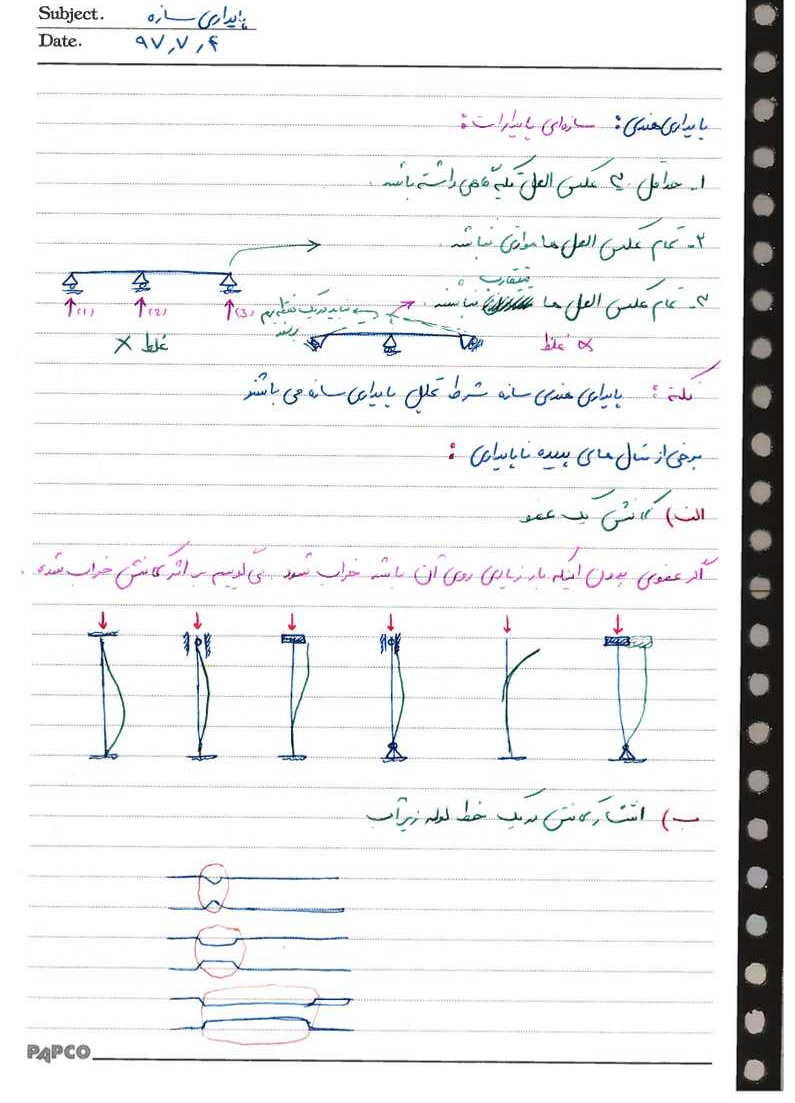 Subject. پایداری سازه
Date. ۹۷٫۷٫۴
پایداری هندسی: سازه‌ای پایدار است:
۱- حداقل ۳ عکس العمل تکیه گاهی داشته باشد.
۲- تمام عکس العمل ها موازی نباشد.
۳- تمام عکس العمل ها متقارب نباشند.
یعنی نباید در یک نقطه بهم برسند
(1) (2) (3)
غلط ×
غلط ×
نکته: پایداری هندسی سازه شرط تحلیل پایداری سازه می باشد
برخی از مثال های پدیده ناپایداری:
الف) کمانش یک عضو
اگر عضوی بدون اینکه بار زیادی روی آن باشد خراب شود می گوییم بر اثر کمانش خراب شده.
ب) انتشار کمانش در یک خط لوله زیر آب
PAPCO